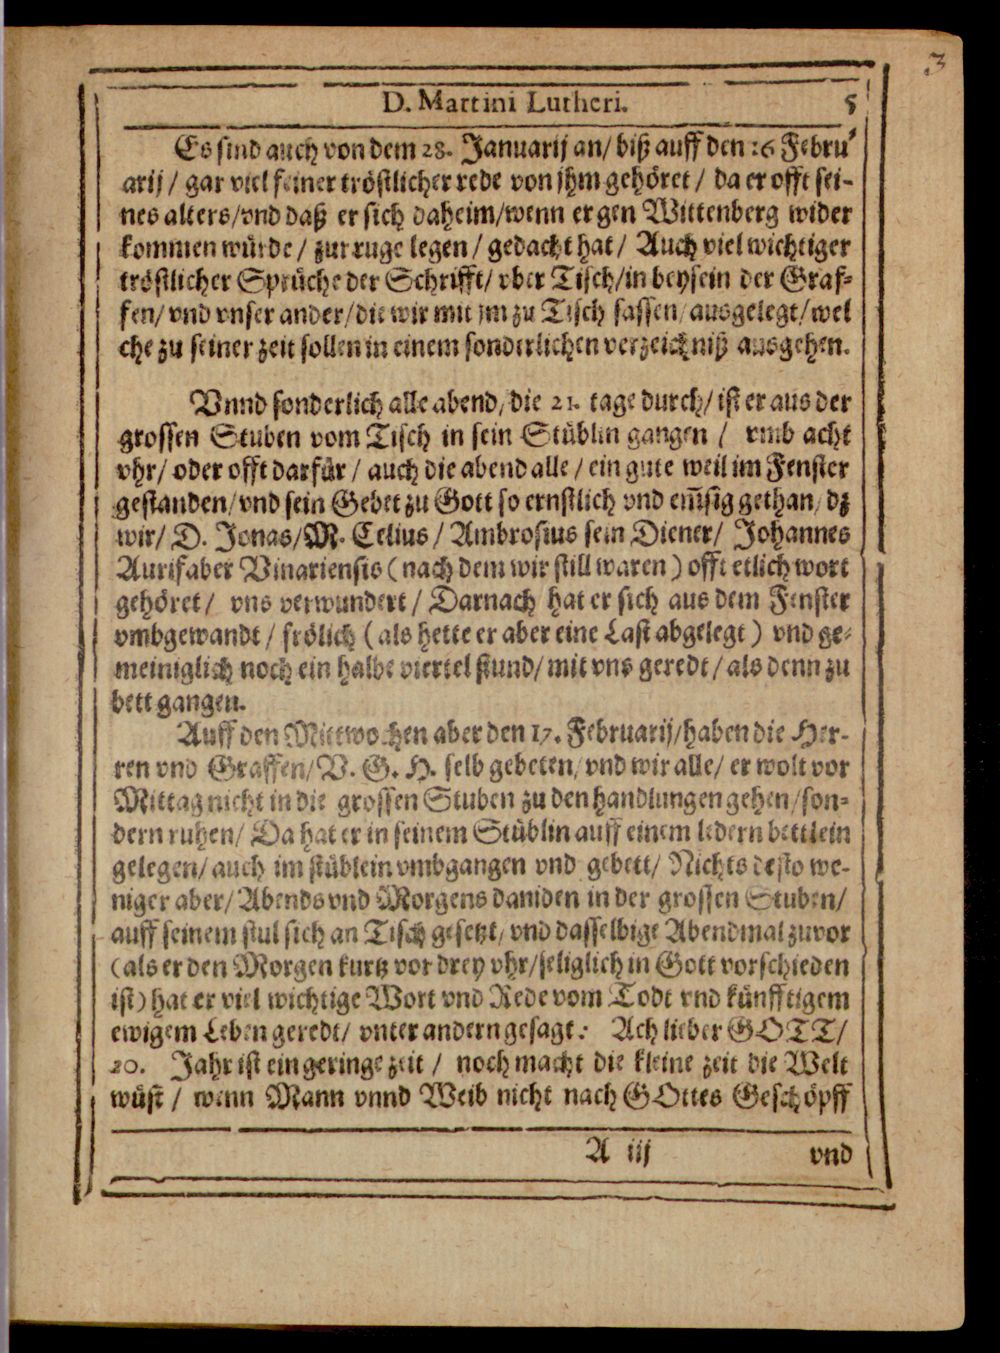 3
D. Martini Lutheri. 5
Es sind auch von dem 28. Januarij an/ biß auff den 16 Febru
arij/ gar viel seiner tröstlicher rede von jhm gehöret/ da er offt sei-
nes alters/vnd daß er sich daheim/wenn er gen Wittenberg wider
kommen würde/ zur ruge legen/ gedacht hat/ Auch viel wichtiger
tröstlicher Sprüche der Schrifft/ vber Tisch/in beysein der Graf-
fen/ vnd vnser ander/die wir mit jm zu Tisch sassen/ausgelegt/wel
che zu seiner zeit sollen in einem sonderlichen verzeichniß ausgehen.
Vnnd sonderlich alle abend/die 21. tage durch/ist er aus der
grossen Stuben vom Tisch in sein Stüblin gangen/ vmb acht
vhr/ oder offt darfür/ auch die abend alle/ ein gute weil im Fenster
gestanden/vnd sein Gebet zu Gott so ernstlich vnd em̃sig gethan/dz
wir/ D. Jonas/M. Celius/ Ambrosius sein Diener/ Johannes
Aurifaber Vinariensis (nach dem wir still waren) offt etlich wort
gehöret/ vns verwundert/ Darnach hat er sich aus dem Fenster
vmbgewandt/ frölich (als hette er aber eine Last abgelegt) vnd ge-
meiniglich noch ein halbe viertel stund/ mit vns geredt/ als denn zu
bett gangen.
Auff den Mittwochen aber den 17. Februarij/haben die Her-
ren vnd Graffen/V. G. H. selb gebeten/vnd wir alle/ er wolt vor
Mittag nicht in die grossen Stuben zu den handlungen gehen/son-
dern ruhen/ Da hat er in seinem Stüblin auff einem ledern bettlein
gelegen/ auch im stüblein vmbgangen vnd gebett/ Nichts desto we-
niger aber/ Abends vnd Morgens daniden in der grossen Stuben/
auff seinem stul sich an Tisch gesetzt/vnd dasselbige Abendmal zuvor
(als er den Morgen kurtz vor drey vhr/seliglich in Gott vorschieden
ist) hat er viel wichtige Wort vnd Rede vom Todt vnd künfftigem
ewigem Leben geredt/ vnter andern gesagt: Ach lieber GOTT/
20. Jahr ist ein geringe zeit/ noch macht die kleine zeit die Welt
wüst/ wenn Mann vnnd Weib nicht nach GOttes Geschöpff
A iij vnd